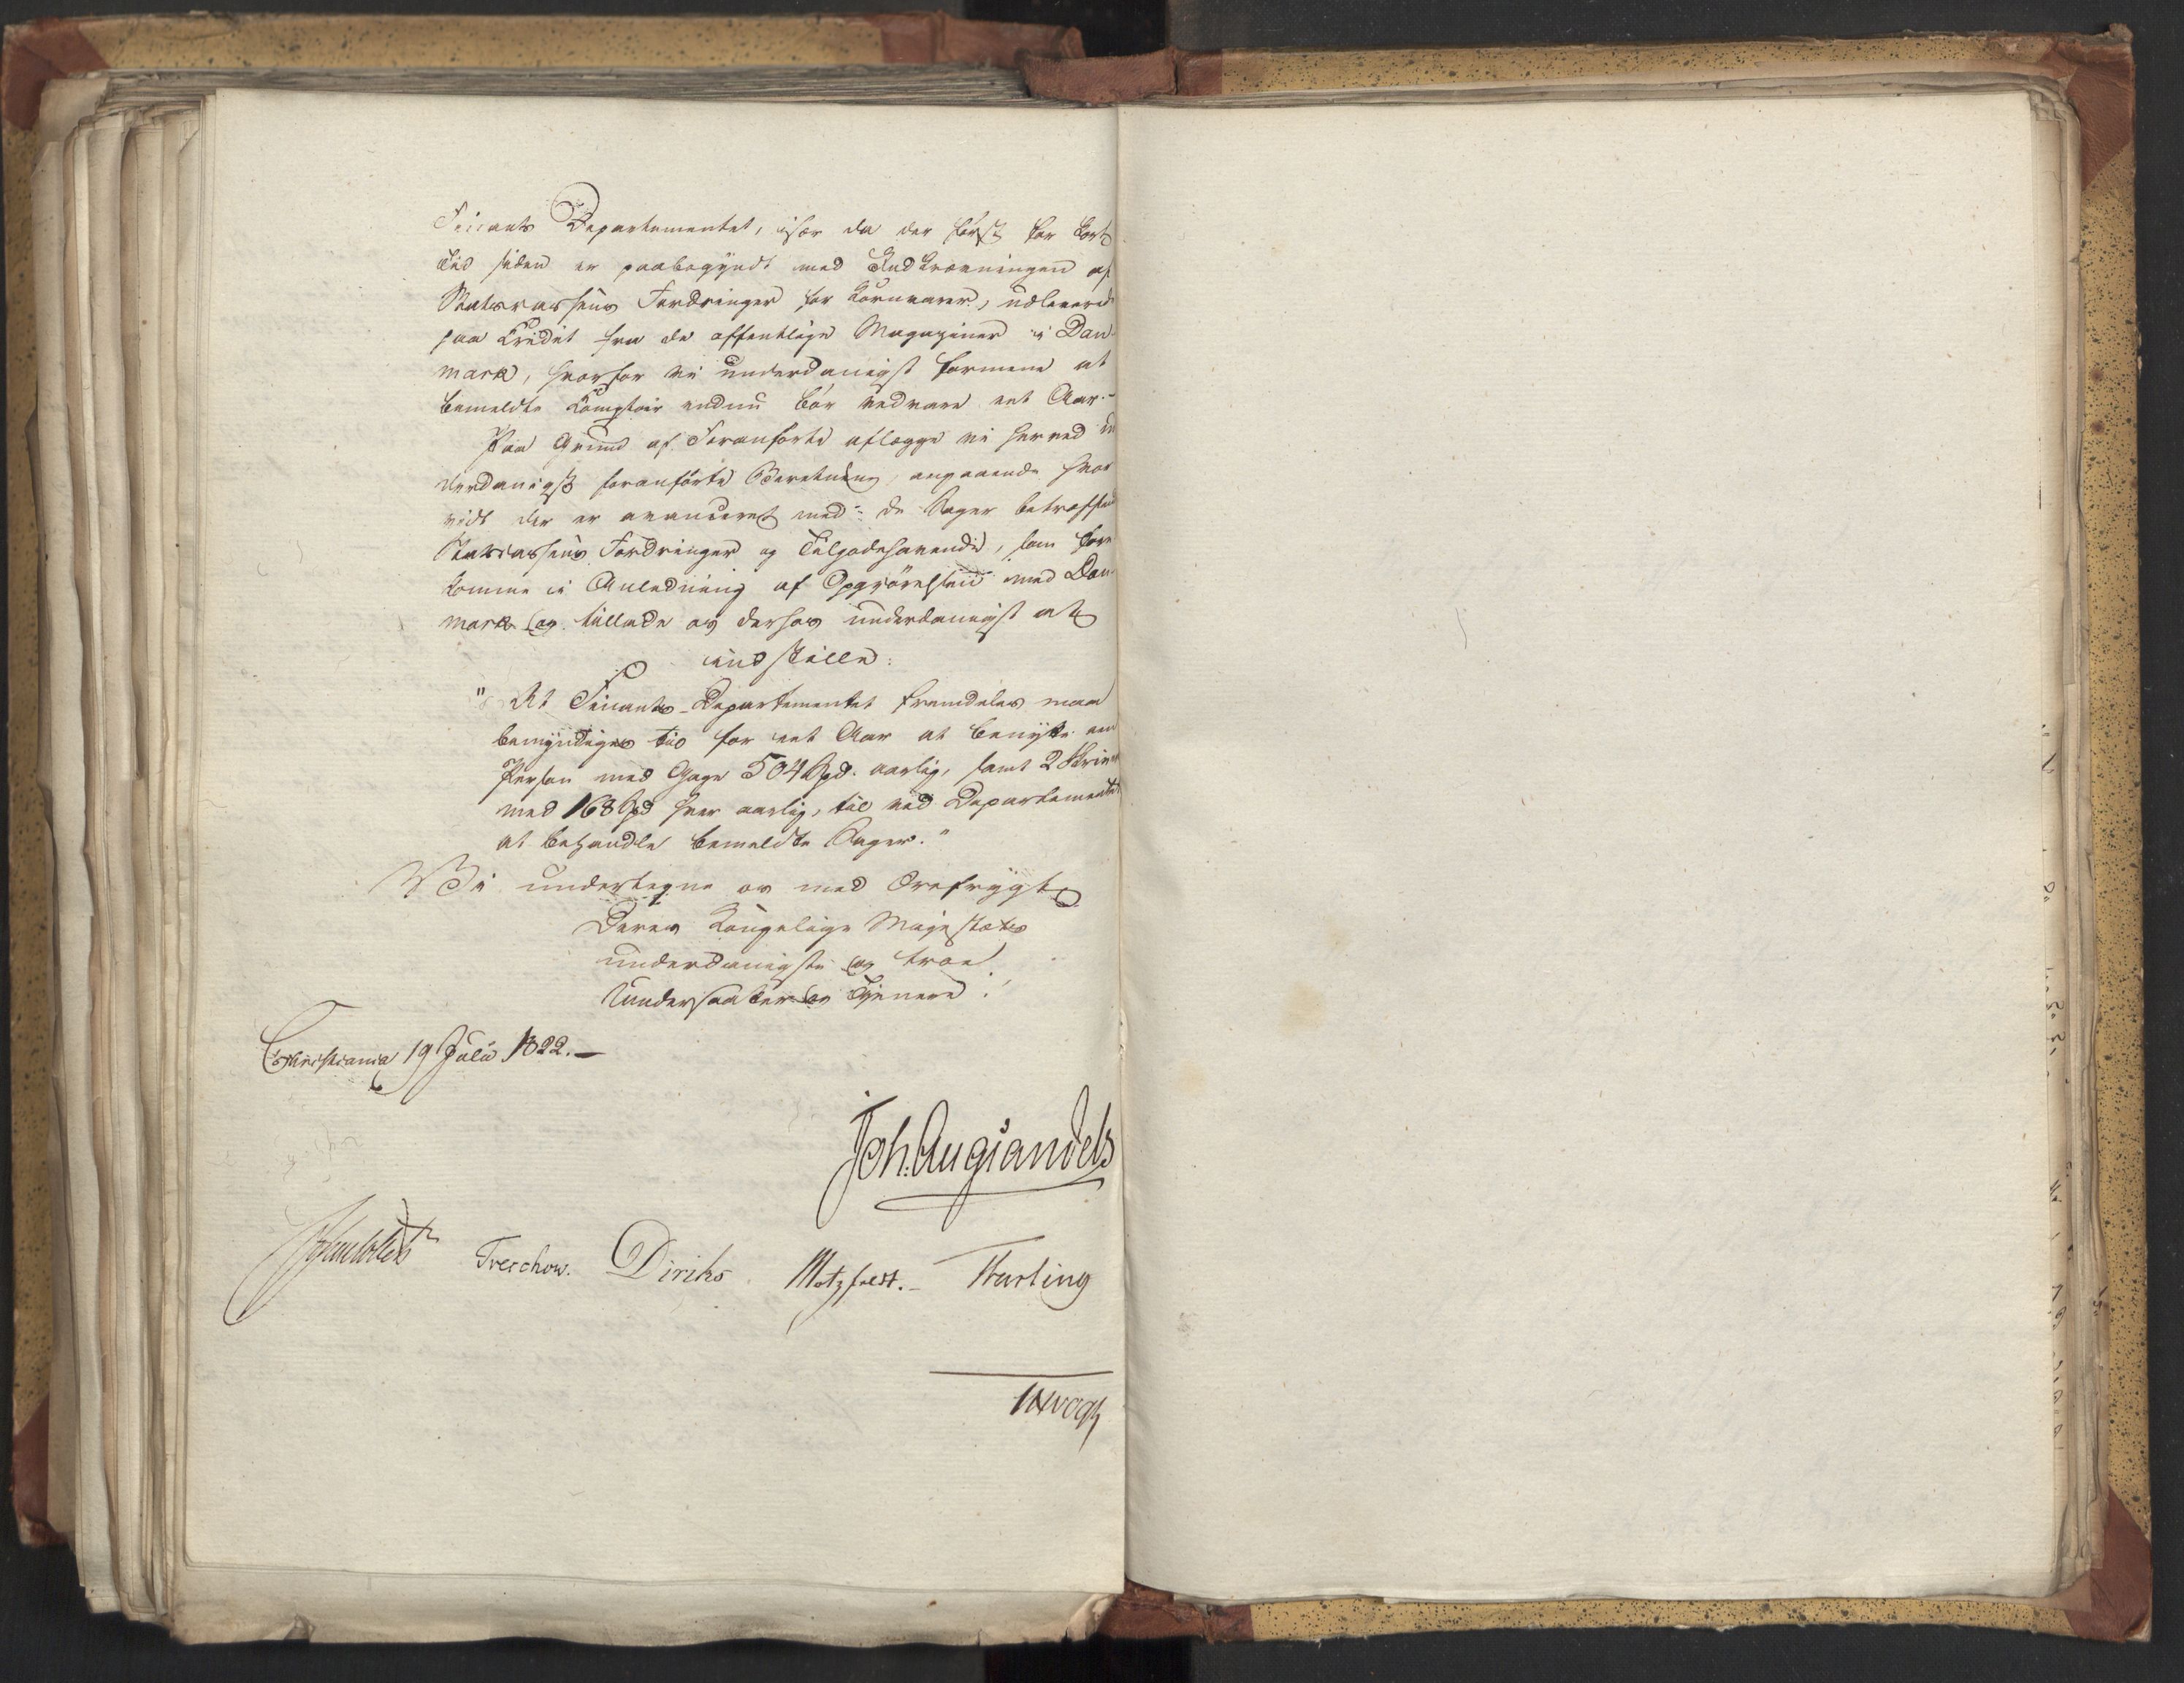 Finants Departementet, især da der først for kort
Tid siden er paabegyndt med Indkrævningen af
Statscassens Fordringer for Kornvarer, udleverede
paa Credit fra de offentlige Magaziner i Dan-
mark, hvorfor vi underdanigst formene at
bemeldte Comptoir endnu bör vedvare eet Aar.-
Paa Grund af Foranförte aflægge vi herved un
derdanigst foranförte Beretning, angaaende hvor
vidt der er avanceret med de Sager betræffende
Statscassens Fordringer og Tilgodehavende, som fore
komme i Anledning af Opgjörelsen med Dan-
mark og tillade os derhos underdanigst at
indstille:
"At Finants-Departementet fremdeles maa
bemyndiges til for eet Aar at benytte een
Person med Gage 504 Spd. aarlig, samt 2 Skrivere
med 168 Spd hver aarlig, til ved Departementet
at behandle bemeldte Sager."
Vi undertegne os med Ærefrygt
Deres Kongelige Majestæts
underdanigste og troe
Undersaatter og Tjenere.
Christiania 19 Julii 1822.-
Joh: Aug Sandels
Treschow. Diriks Motzfeldt.- Fasting
Vogt